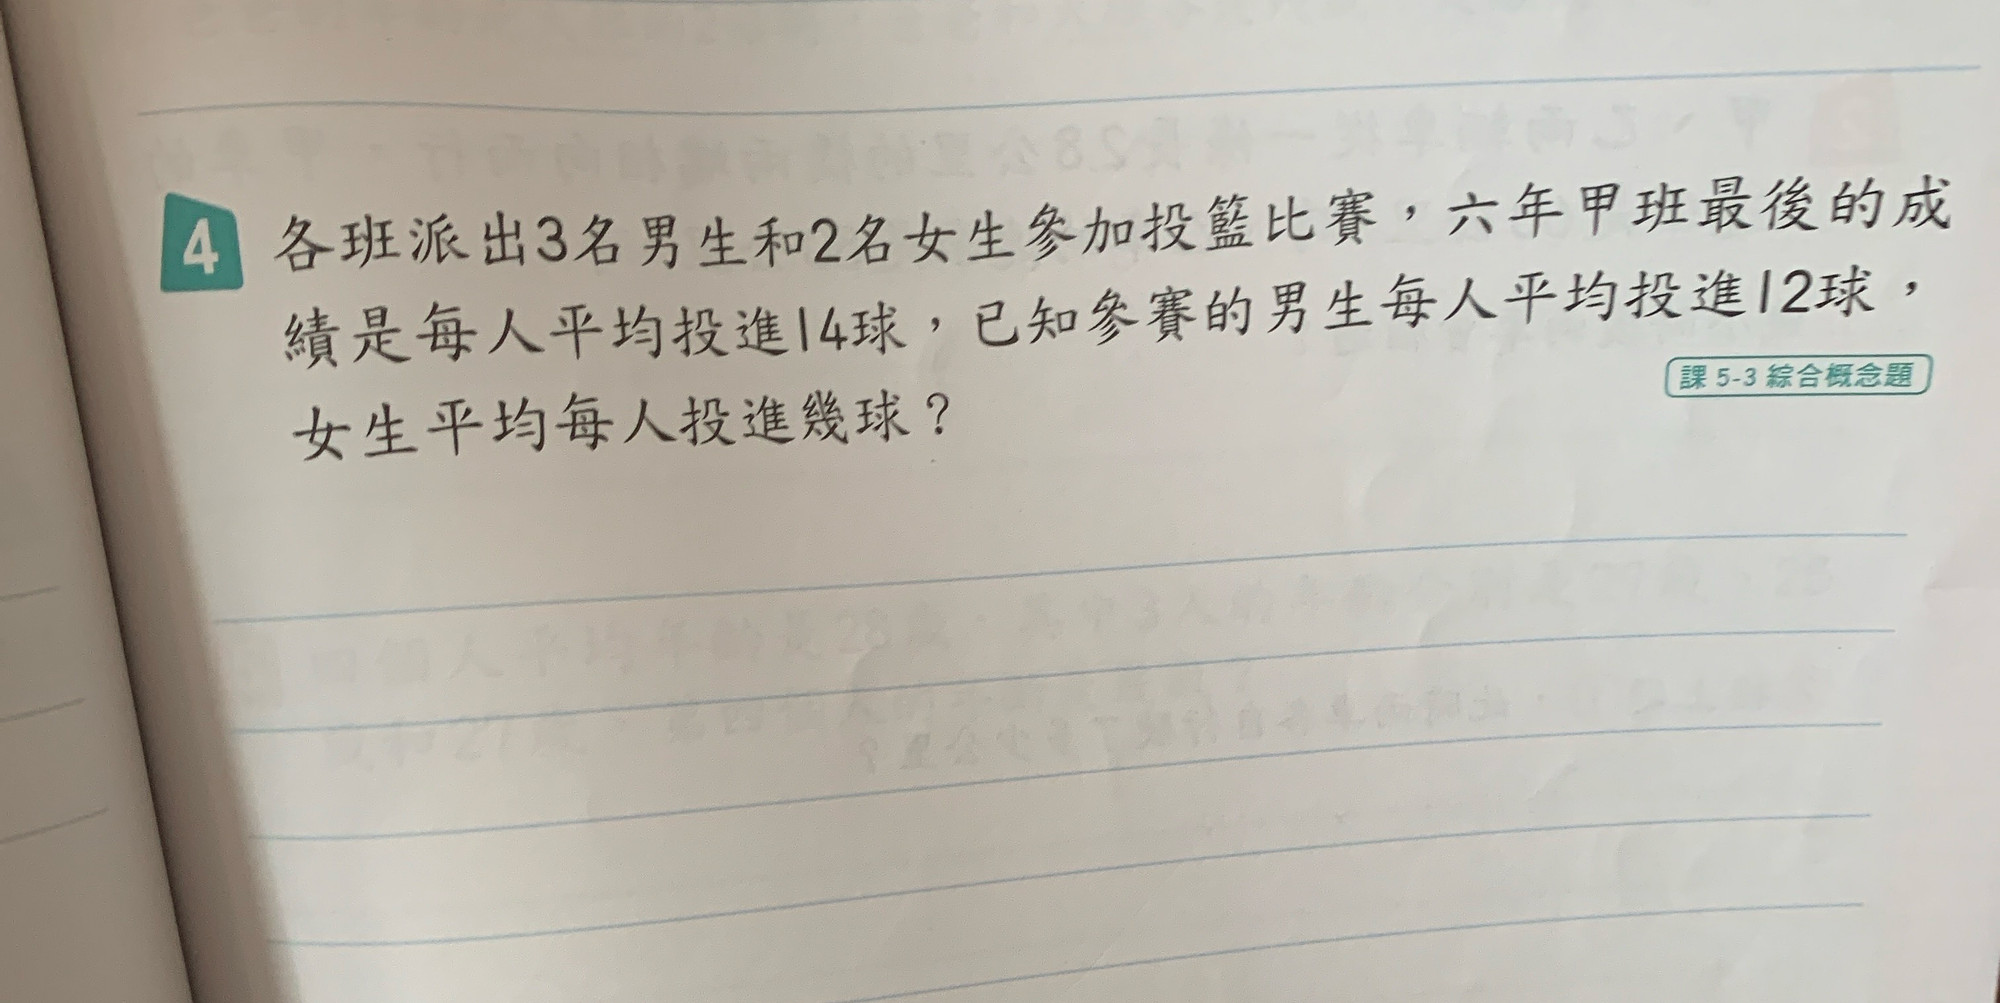 4 各班派出3名男生和2名女生參加投籃比賽，六年甲班最後的成
績是每人平均投進14球，已知參賽的男生每人平均投進12球，
女生平均每人投進幾球？
課 5-3 綜合概念題